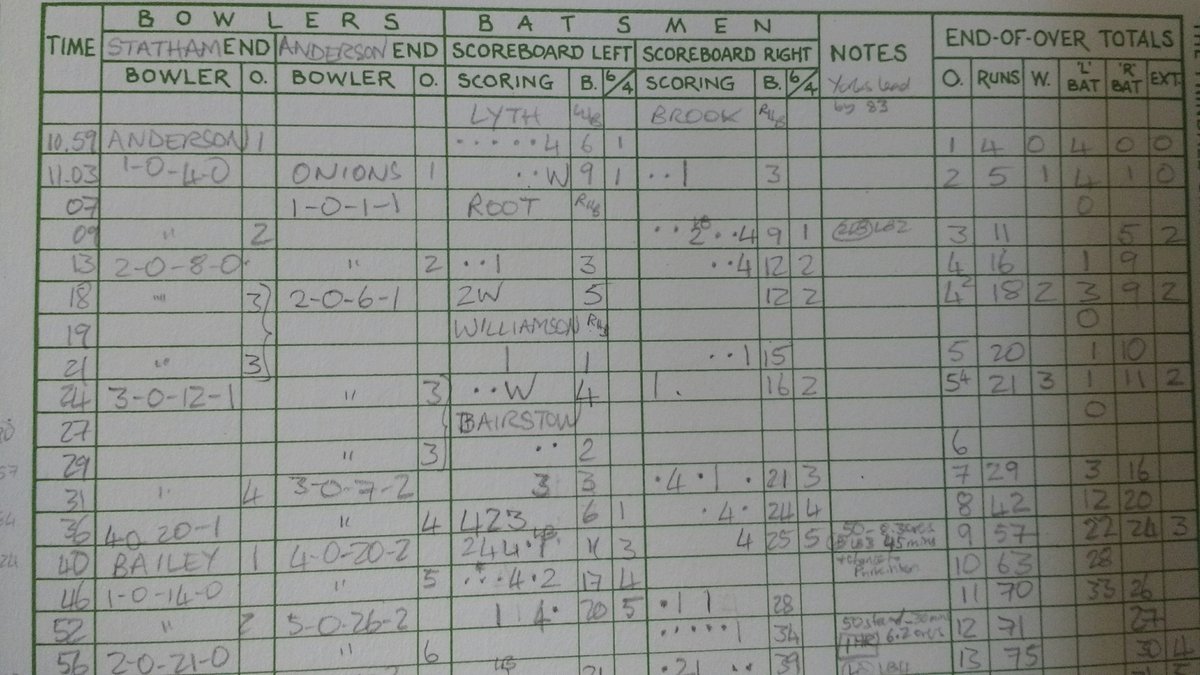 BOWLERS BATSMEN
TIME STATHAM END ANDERSON END SCOREBOARD LEFT SCOREBOARD RIGHT NOTES END-OF-OVER TOTALS
BOWLER O. BOWLER O. SCORING B. 6/4 SCORING B. 6/4 Yorks lead O. RUNS W. 'L' BAT 'R' BAT EXT.
LYTH BROOK by 83
10.59 ANDERSON 1 ·····4 6 1 1 4 0 4 0 0
11.03 1-0-4-0 ONIONS 1 ··W 9 1 ··1 3 2 5 1 4 1 0
07 1-0-1-1 ROOT 0
09 " 2 ··2··4 9 1 3 11 5 2
13 2-0-8-0 " 2 ··1 3 ··4 12 2 4 16 1 9
18 " 3 2-0-6-1 2W 5 12 2 4² 18 2 3 9 2
19 WILLIAMSON 0
21 " 3 1 1 ··1 15 5 20 1 10
24 3-0-12-1 " 3 ··W 4 1. 16 2 5⁴ 21 3 1 11 2
27 BAIRSTOW 0
29 " 3 ·· 2 6
31 " 4 3-0-7-2 3 3 ·4·1· 21 3 7 29 3 16
36 40 20-1 " 4 423 6 1 ·4· 24 4 8 42 12 20
40 BAILEY 1 4-0-20-2 244·1 11 3 4 25 5 50-8.3 overs 45 mins 9 57 22 24 3
46 1-0-14-0 " 5 ···4·2 17 4 10 63 28
52 " 2 5-0-26-2 1 4· 20 5 ·11 28 11 70 33 26
56 2-0-21-0 " 6 ·····1 34 50 stand-30 min 6.2 overs 12 71 27
·21 ·· 39 13 75 30 4